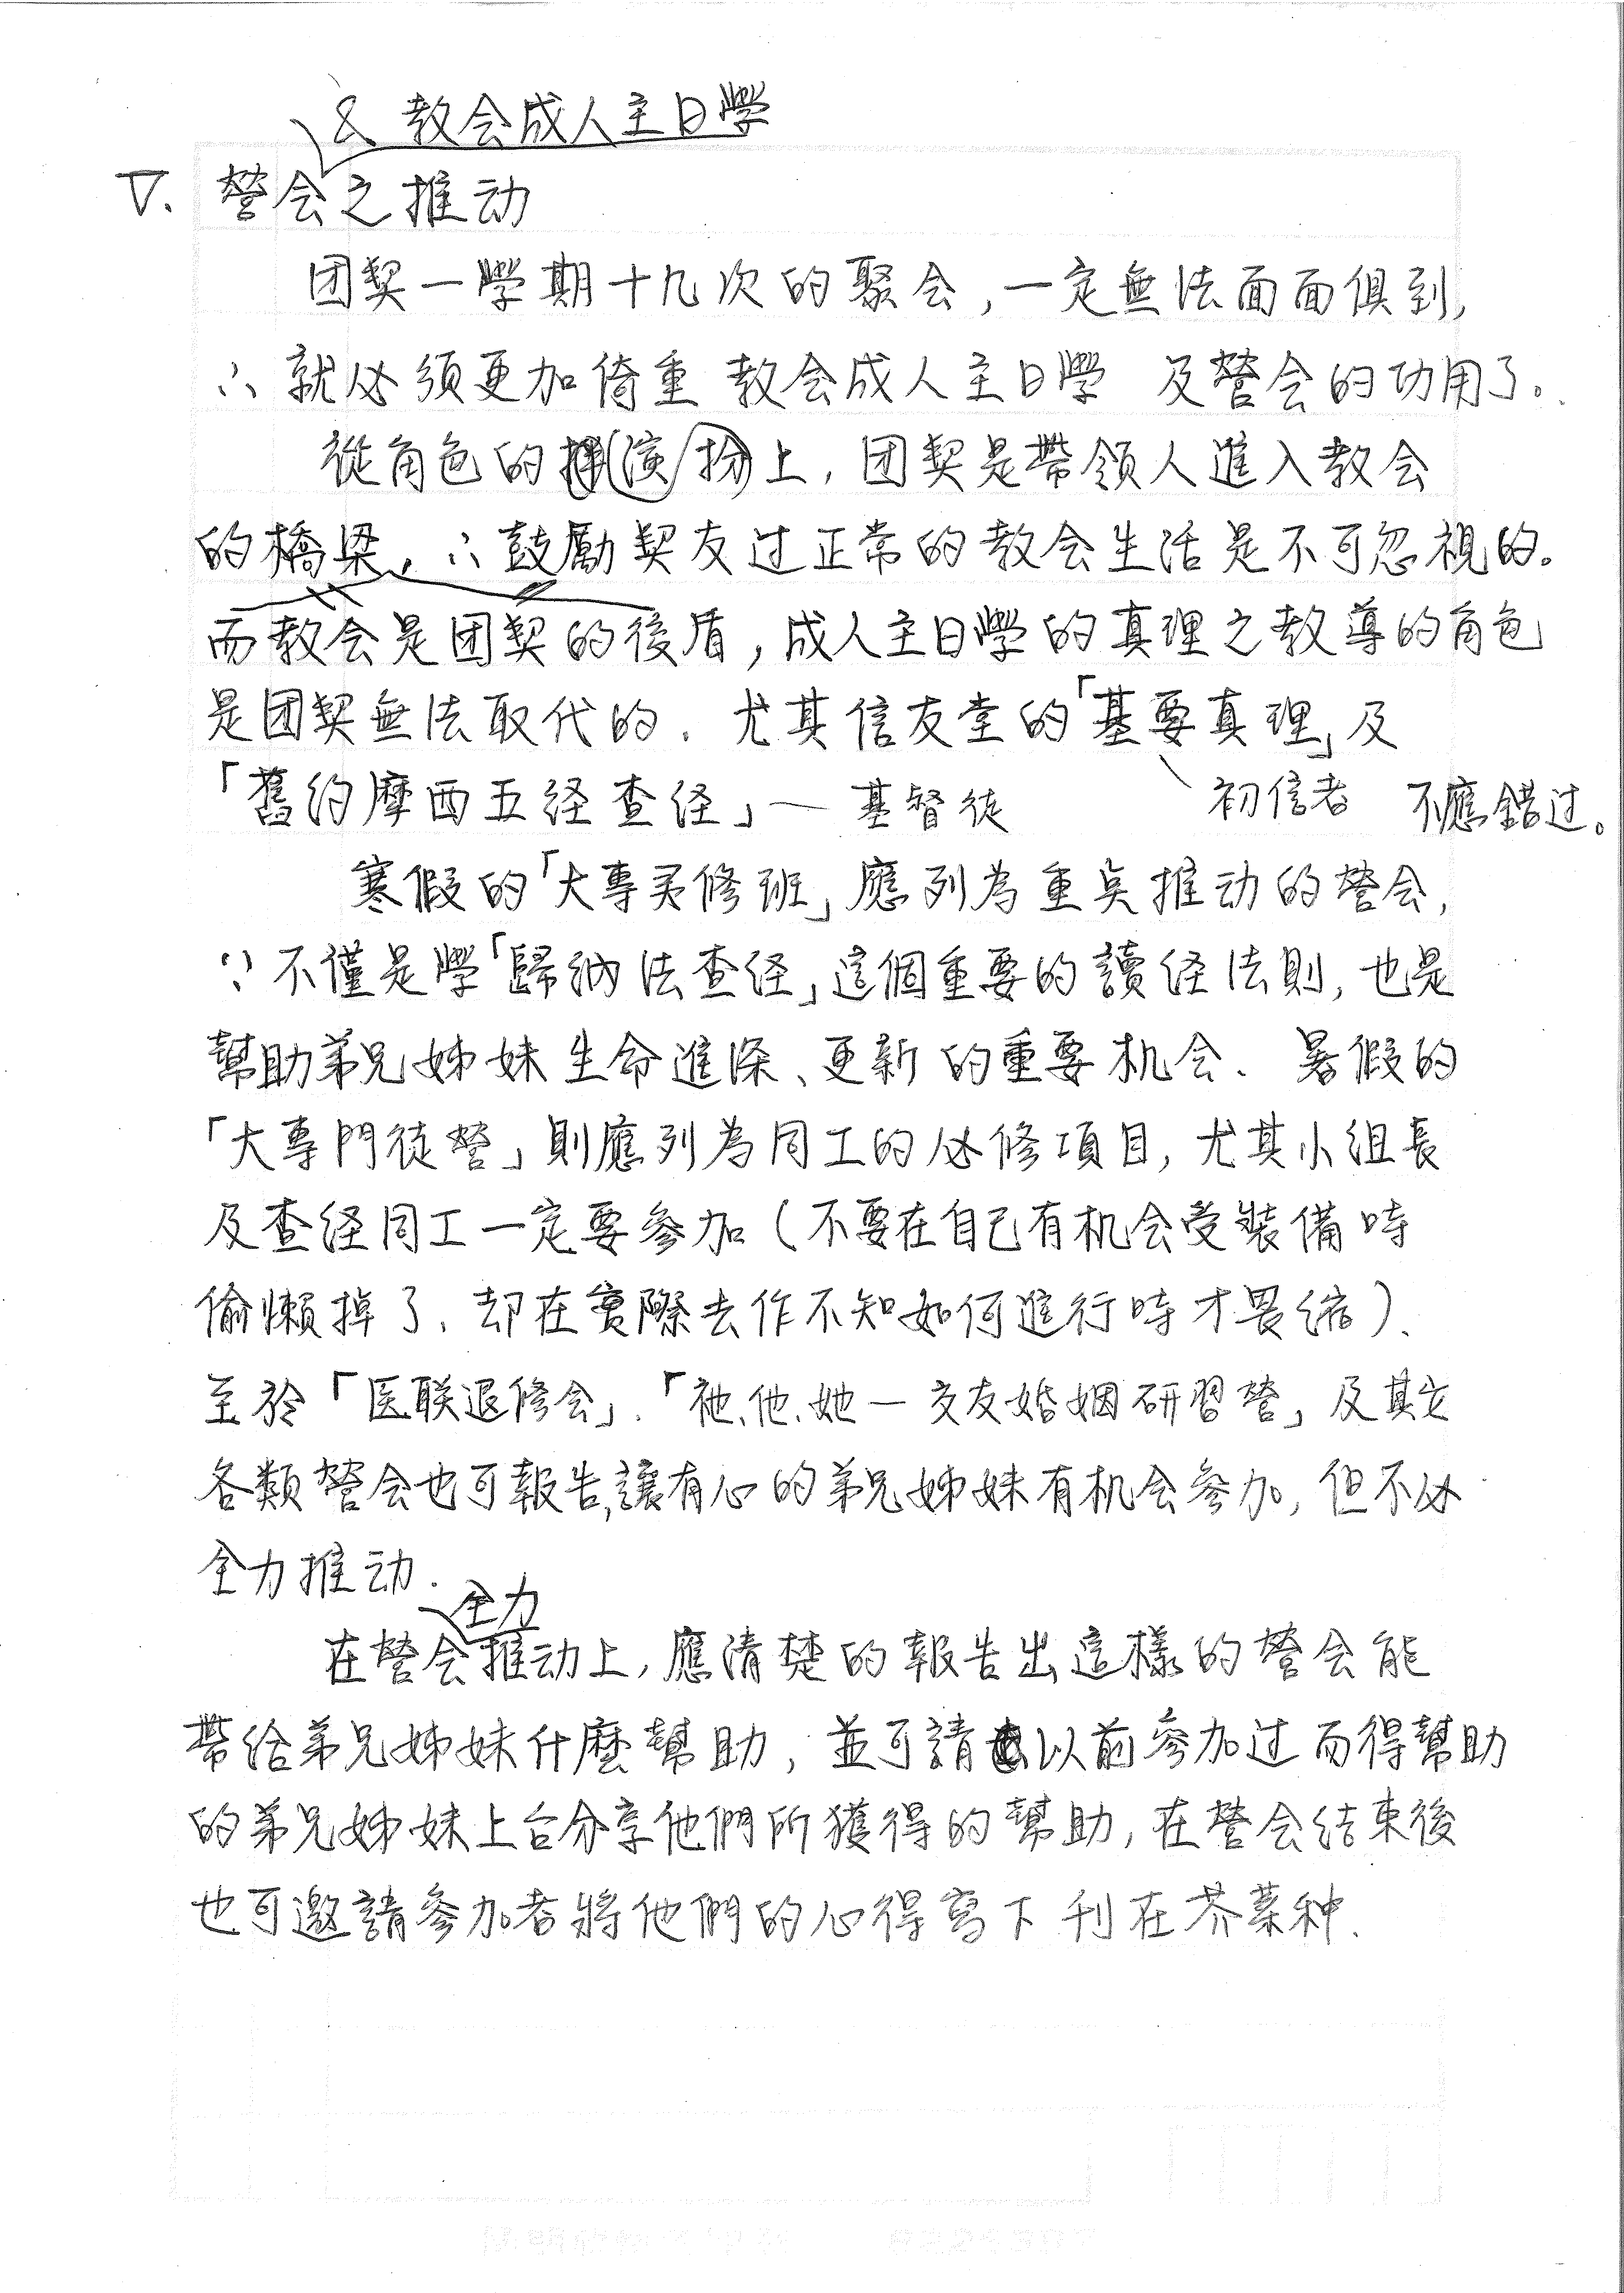 & 教会成人主日學
V. 營会之推动
团契一學期十几次的聚会,一定無法面面俱到,
∴就必須更加倚重 教会成人主日學 及營会的功用了。
從角色的演扮上,团契是帶領人進入教会
的橋梁,∴鼓勵契友过正常的教会生活是不可忽視的。
而教会是团契的後盾,成人主日學的真理之教導的角色
是团契無法取代的.尤其信友堂的「基要真理」及
「舊約摩西五経查経」—基督徒 初信者 不應錯过。
寒假的「大專灵修班」應列為重点推动的營会,
∵不僅是學「歸納法查経」這個重要的讀経法則,也是
幫助弟兄姊妹生命進深、更新的重要机会.暑假的
「大專門徒營」則應列為同工的必修項目,尤其小組長
及查経同工一定要參加(不要在自己有机会受裝備時
偷懶掉了、却在實際去作不知如何進行時才畏縮)、
至於「医联退修会」、「祂、他、她—交友婚姻研習營」及其它
各類營会也可報告,讓有心的弟兄姊妹有机会參加,但不必
全力推动.
全力
在營会推动上,應清楚的報告出這樣的營会能
帶给弟兄姊妹什麼幫助,並可請以前參加过而得幫助
的弟兄姊妹上台分享他們所獲得的幫助,在營会结束後
也可邀請參加者將他們的心得寫下刊在芥菜种.